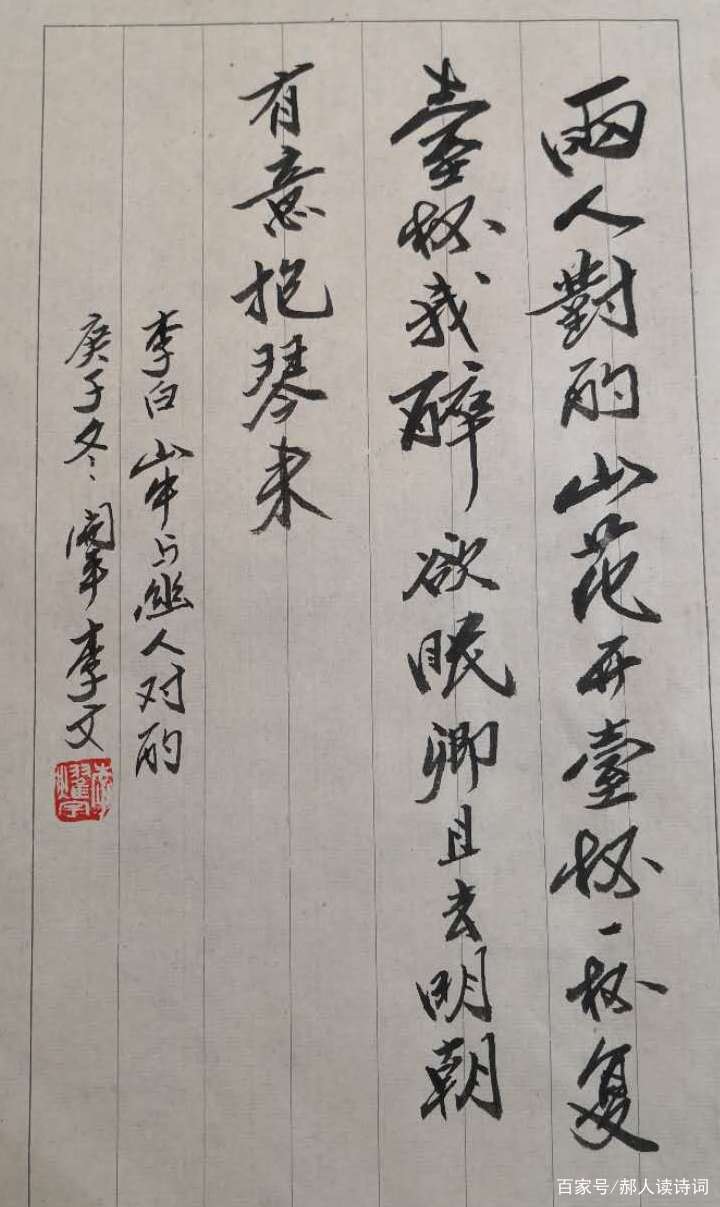 兩人對酌山花开壹杯一杯复
壹杯我醉欲眠卿且去明朝
有意抱琴来
李白 山中与幽人对酌
庚子冬 李文
百家号/郝人读诗词